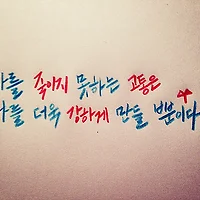 나를 죽이지 못하는 고통은
나를 더욱 강하게 만들 뿐이다